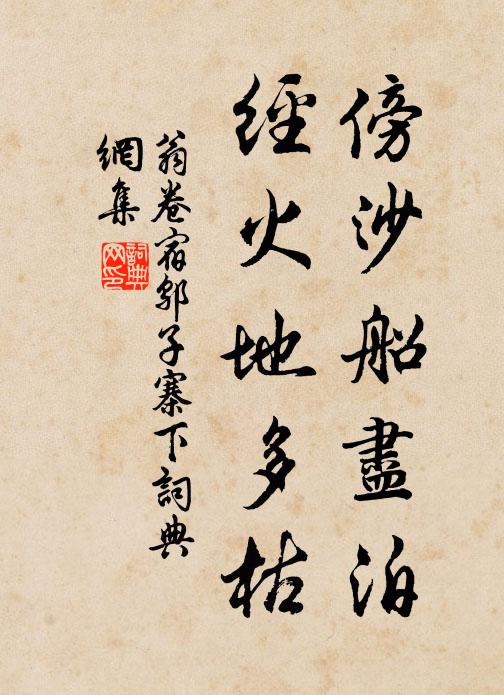 傍沙船盡泊
經火地多枯
翁卷宿鄔子寨下詞典
網集
詞典
网印